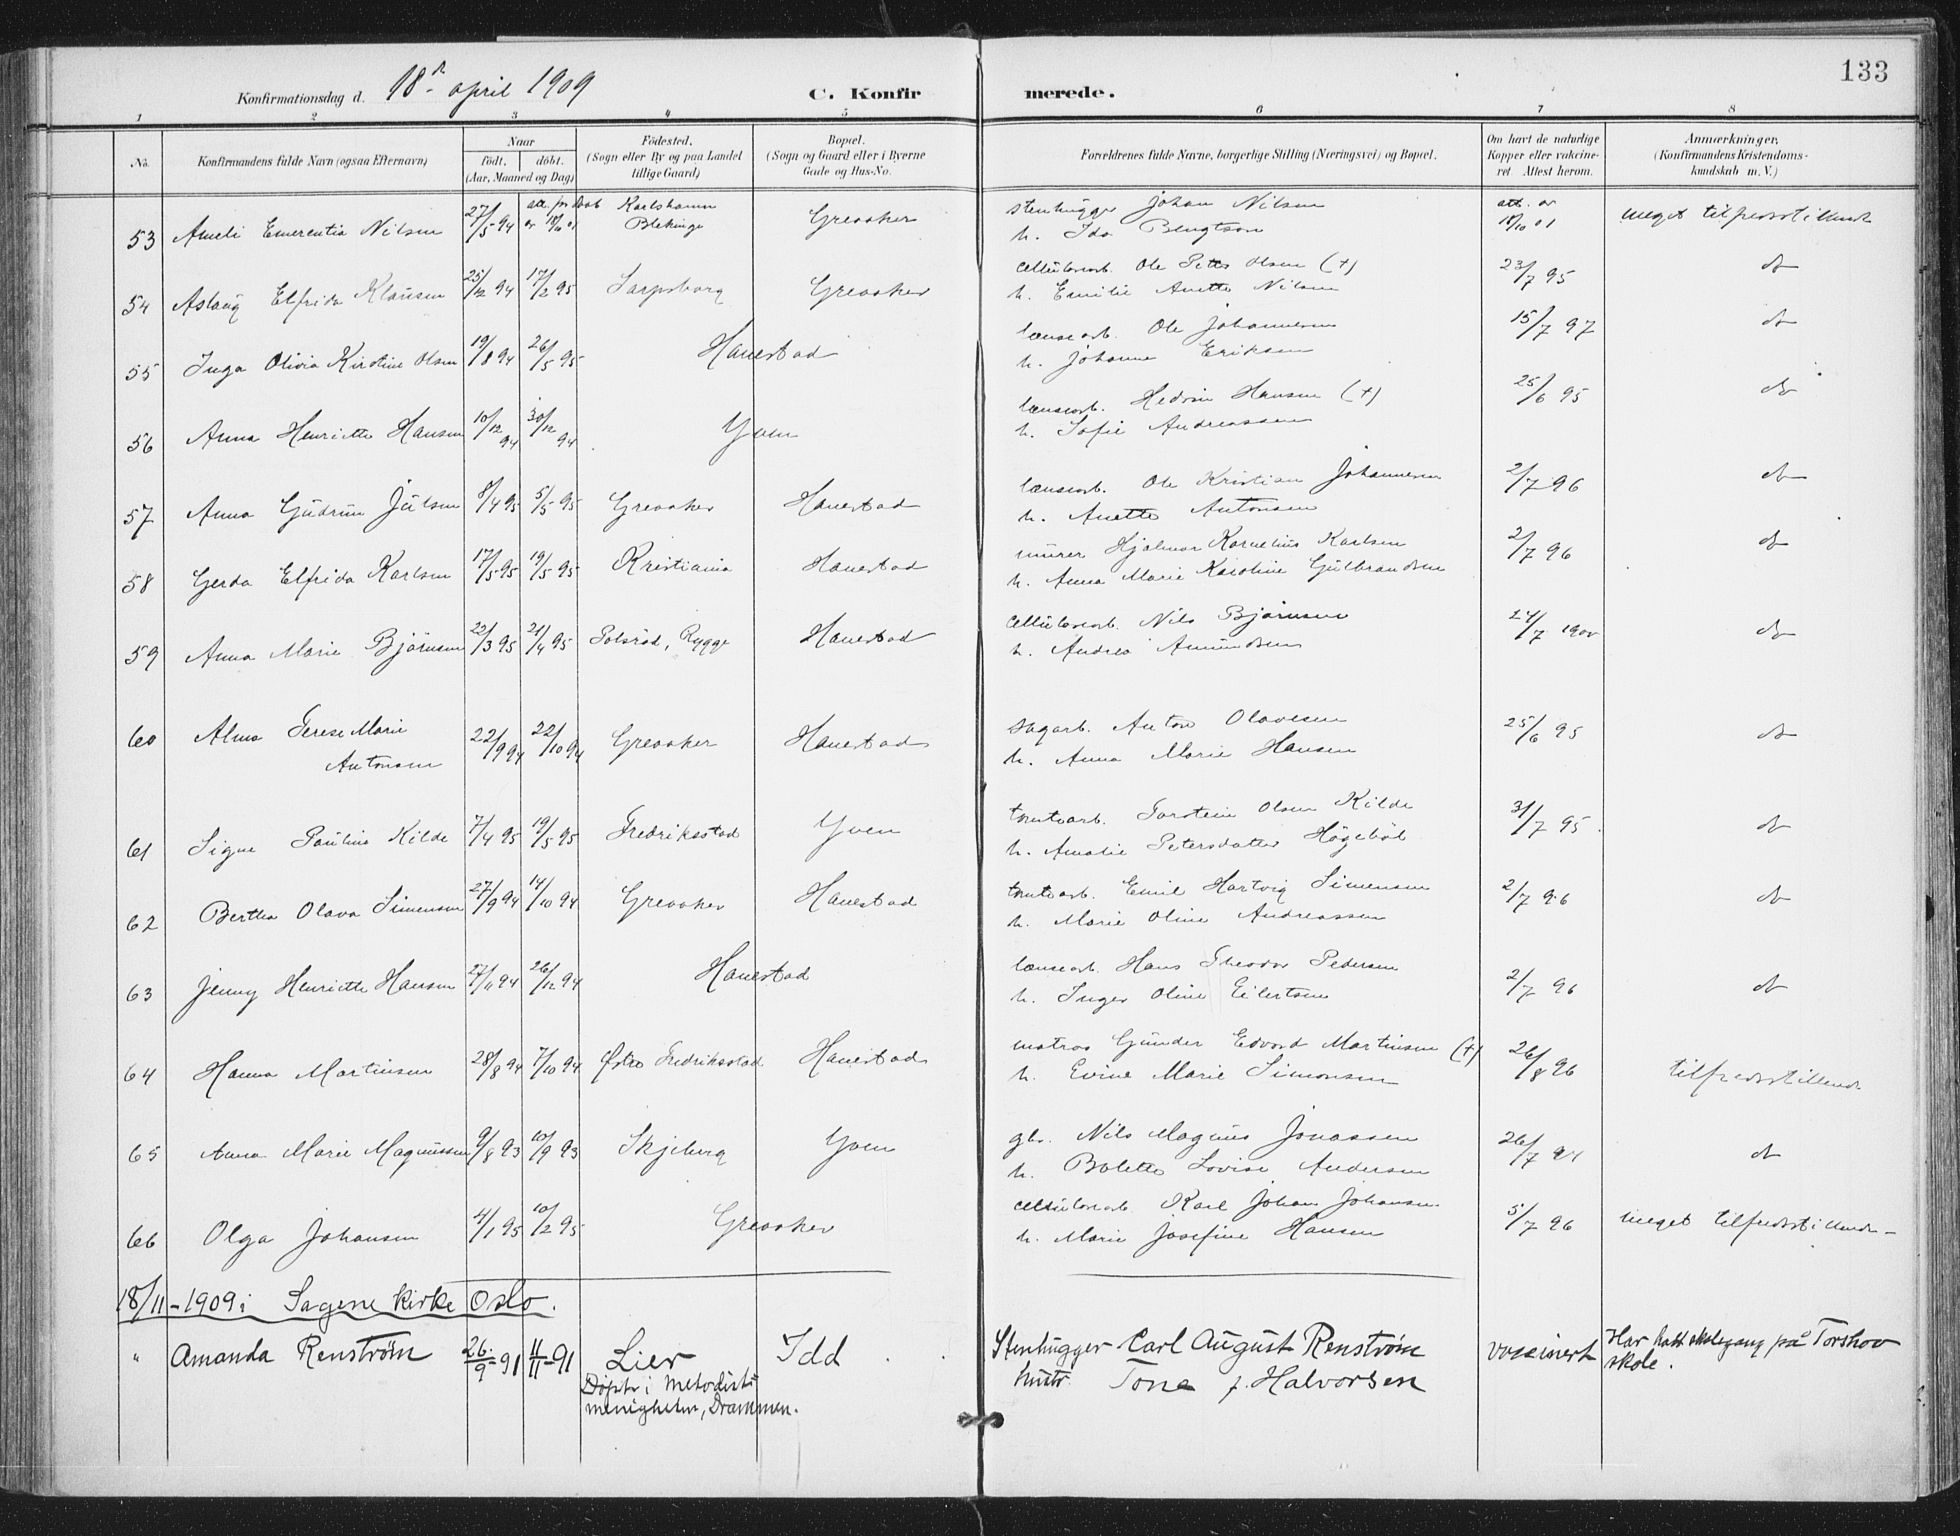 133
Konfirmationsdag d. 18de april 1909 C. Konfirmerede.
1 2 3 4 5 6 7 8
No. Konfirmandens fulde Navn (ogsaa Efternavn) Naar födt. döbt. (Aar, Maaned og Dag) Födested. (Sogn eller By og paa Landet tillige Gaard) Bopæl. (Sogn og Gaard eller i Byerne Gade og Hus-No. Forældrenes fulde Navne, borgerlige Stilling (Næringsvei) og Bopæl. Om havt de naturlige Kopper eller vakcineret. Attest herom. Anmærkninger, (Konfirmandens Kristendomskundskab m. V.)
53 Ameli Emerentia Nilsen 27/5 94 att. for daab av 18/10 01 Karlshamn Blekinge Greaaker stenhugger Johan Nilsen att. av 18/10 01 meget tilfredsstillende
h. Ida Bengtson
54 Aslaug Elfrida Klausen 25/12 94 17/2 95 Sarpsborg Greaaker cellulosearb. Ole Peter Olsen (+) 23/7 95 do
h. Emilie Anette Nilsen
55 Inga Olivia Kirstine Olsen 19/8 94 26/5 95 Hauestad lænsearb. Ole Johannesen 15/7 97 do
h. Johanne Eriksen
56 Anna Henriette Hansen 10/12 94 30/12 94 Yven lænsearb. Hedvin Hansen (+) 25/6 95 do
h. Sofie Andreassen
57 Anna Gudrun Julsen 8/4 95 5/5 95 Greaaker Hauestad lænsearb. Ole Kristian Johannesen 2/7 96 do
h. Anette Antonsen
58 Gerda Elfrida Karlsen 17/5 95 19/5 95 Kristiania Hauestad murer Hjalmar Kornelius Karlsen 2/7 96 do
h. Anna Marie Karoline Gulbrandsen
59 Anna Marie Bjørnsen 22/3 95 21/4 95 Rygge Hauestad cellulosearb. Nils Bjørnsen 24/7 1900 do
h. Andrea Amundsen
60 Alma Terese Marie Antonsen 22/9 94 22/10 94 Greaaker Hauestad sagarb. Anton Olavesen 25/6 95 do
h. Anna Marie Hansen
61 Signe Pauline Kilde 7/4 95 19/5 95 Fredriksstad Yven tomtearb. Torstein Olsen Kilde 31/7 95 do
h. Amalie Petersdatter Høgebøl
62 Bertha Olava Simensen 27/9 94 14/10 94 Greaaker Hauestad tomtearb. Emil Hartvig Simensen 2/7 96 do
h. Marie Oline Andreassen
63 Jenny Henriette Hansen 27/11 94 26/12 94 Hauestad lænsearb. Hans Theodor Pedersen 2/7 96 do
h. Inger Oline Eilertsen
64 Hanna Martinsen 28/8 94 7/10 94 Østre Fredriksstad Hauestad matros Gunder Edvard Martinsen (+) 26/8 96 tilfredsstillende
h. Evine Marie Simonsen
65 Anna Marie Magnussen 9/8 93 10/9 93 Skjeberg Yven gbr. Nils Magnus Jonassen 26/7 do
h. Bolette Lovise Andersen
66 Olga Johansen 4/1 95 10/2 95 Greaaker cellulosearb. Karl Johan Johansen 5/7 96 meget tilfredsstillende
h. Marie Josefine Hansen
18/11-1909 i Sagene kirke Oslo.
" Amanda Renstrøm 26/9-91 11/11-91 Lier Idd Stenhugger Carl August Renstrøm vaksinert Har hatt skolegang på Torshov skole.
Døpt i Metodistmenigheten, Drammen. hustr. Tone f. Halvorsen